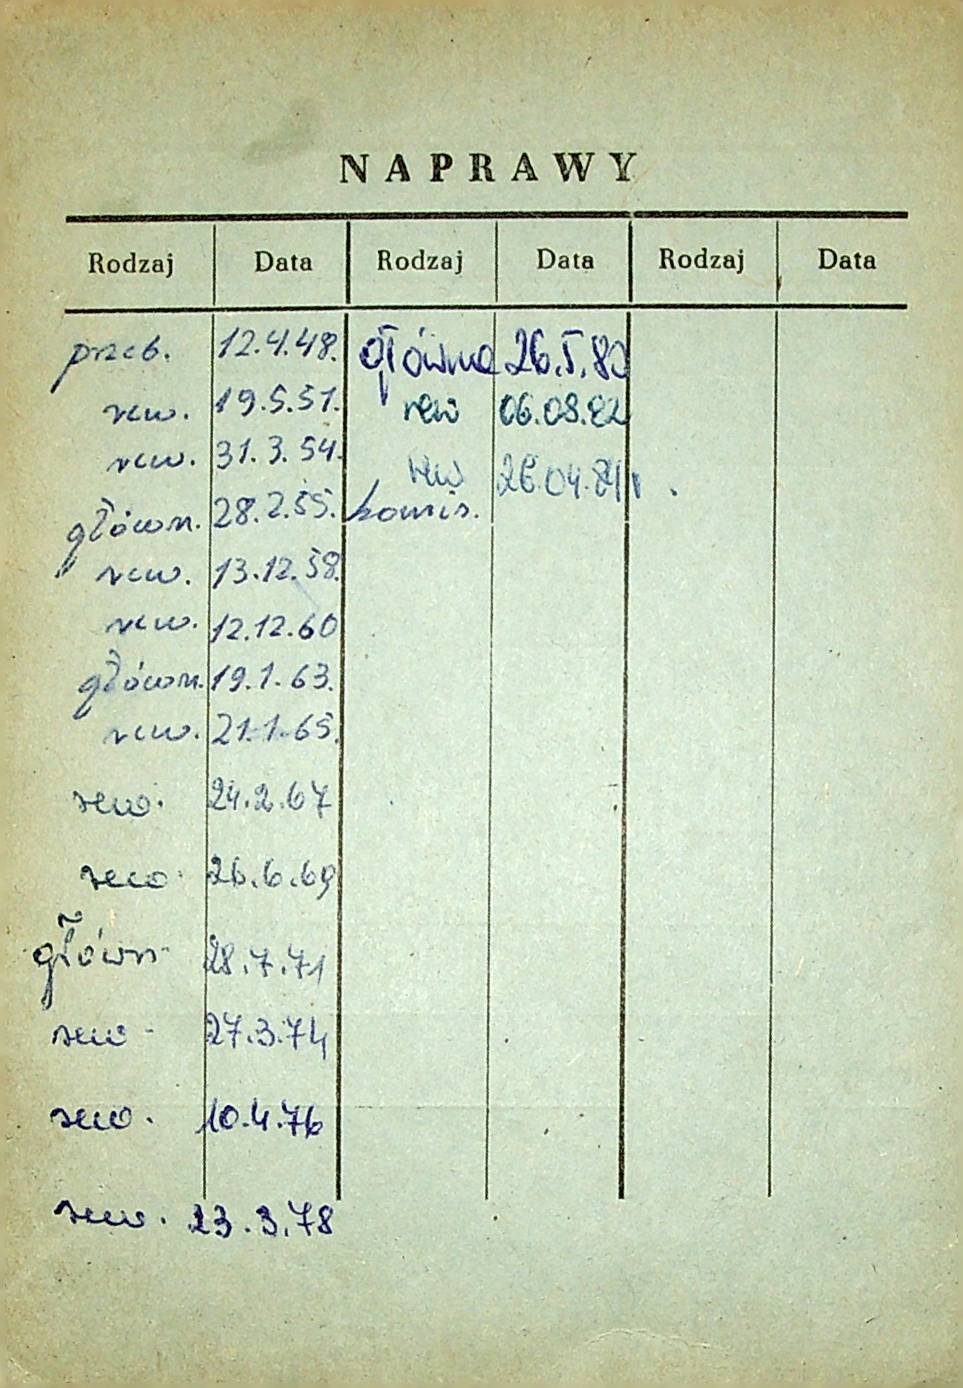 NAPRAWY
Rodzaj Data Rodzaj Data Rodzaj Data
przeb. 12.4.48. główna 26.5.80
rew. 19.5.51. rew 06.08.82
rew. 31.3.54. rew 26.04.84
główn. 28.2.55. komis.
rew. 13.12.58.
rew. 12.12.60
główn. 19.1.63.
rew. 21.1.65.
rew. 24.2.67
rew. 26.6.69
główn 28.7.71
rew - 27.3.74
rew. 10.4.76
rew. 23.3.78